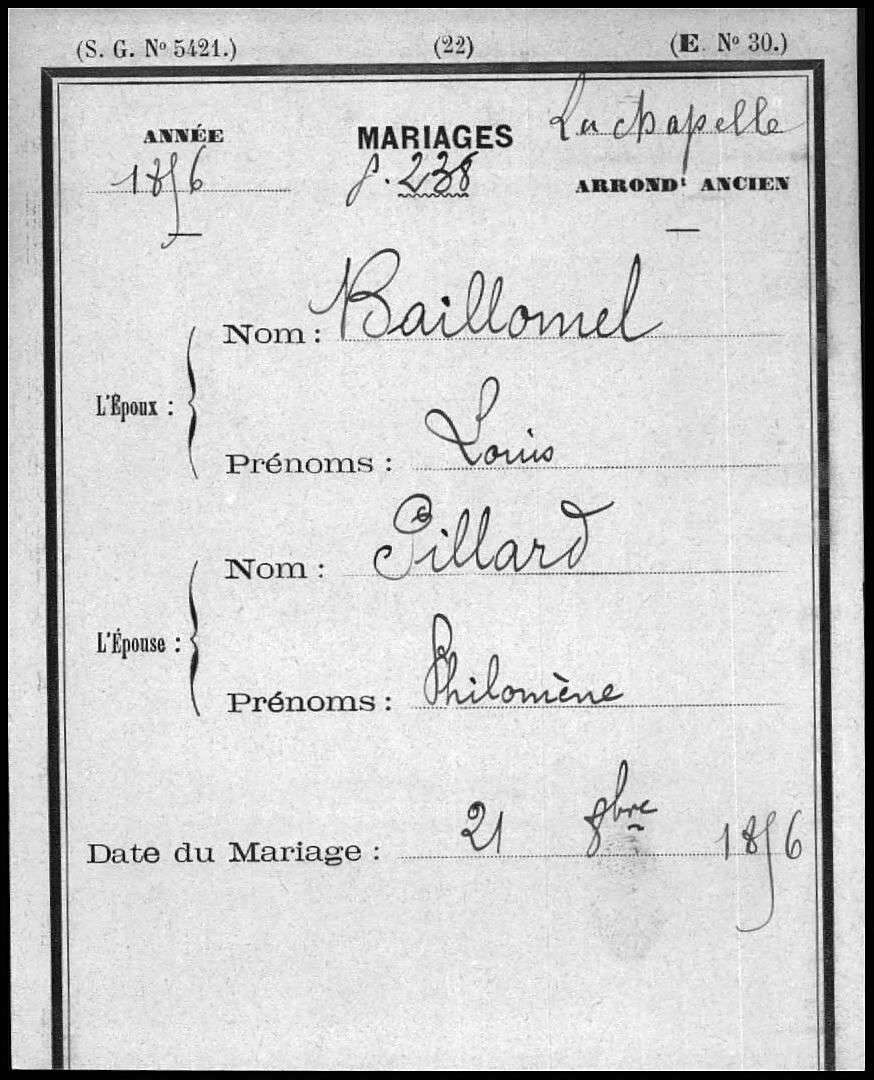 (S. G. Nº 5421.) (22) (E. Nº 30.)
ANNÉE MARIAGES La chapelle
1856 f. 238 ARRONDᵗ ANCIEN
L'Époux :
Nom : Baillomel
Prénoms : Louis
L'Épouse :
Nom : Pillard
Prénoms : Philomène
Date du Mariage : 21 8bre 1856